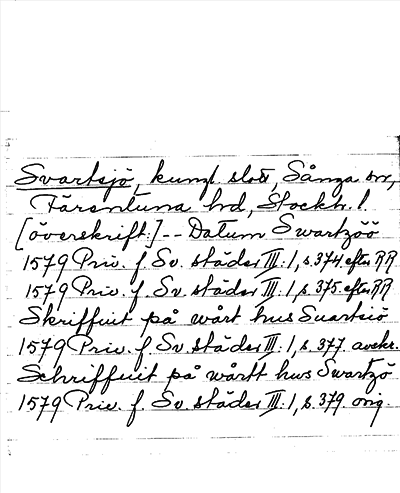 Svartsjö, kungl. slott, Sånga sn,
Färentuna hd, Stockh. l.
[överskrift:] -- Datum Swartzöö
1579 Priv. f. Sv. städer III. 1, s. 374 efter RR
1579 Priv. f. Sv. städer III. 1, s. 375. efter RR
Skriffuit på wårt hus Suartsiö
1579 Priv. f. Sv. städer III. 1, s. 377. avskr.
Schriffuit på wårtt hws Swartzö
1579 Priv. f. Sv. städer III. 1, s. 379. orig.